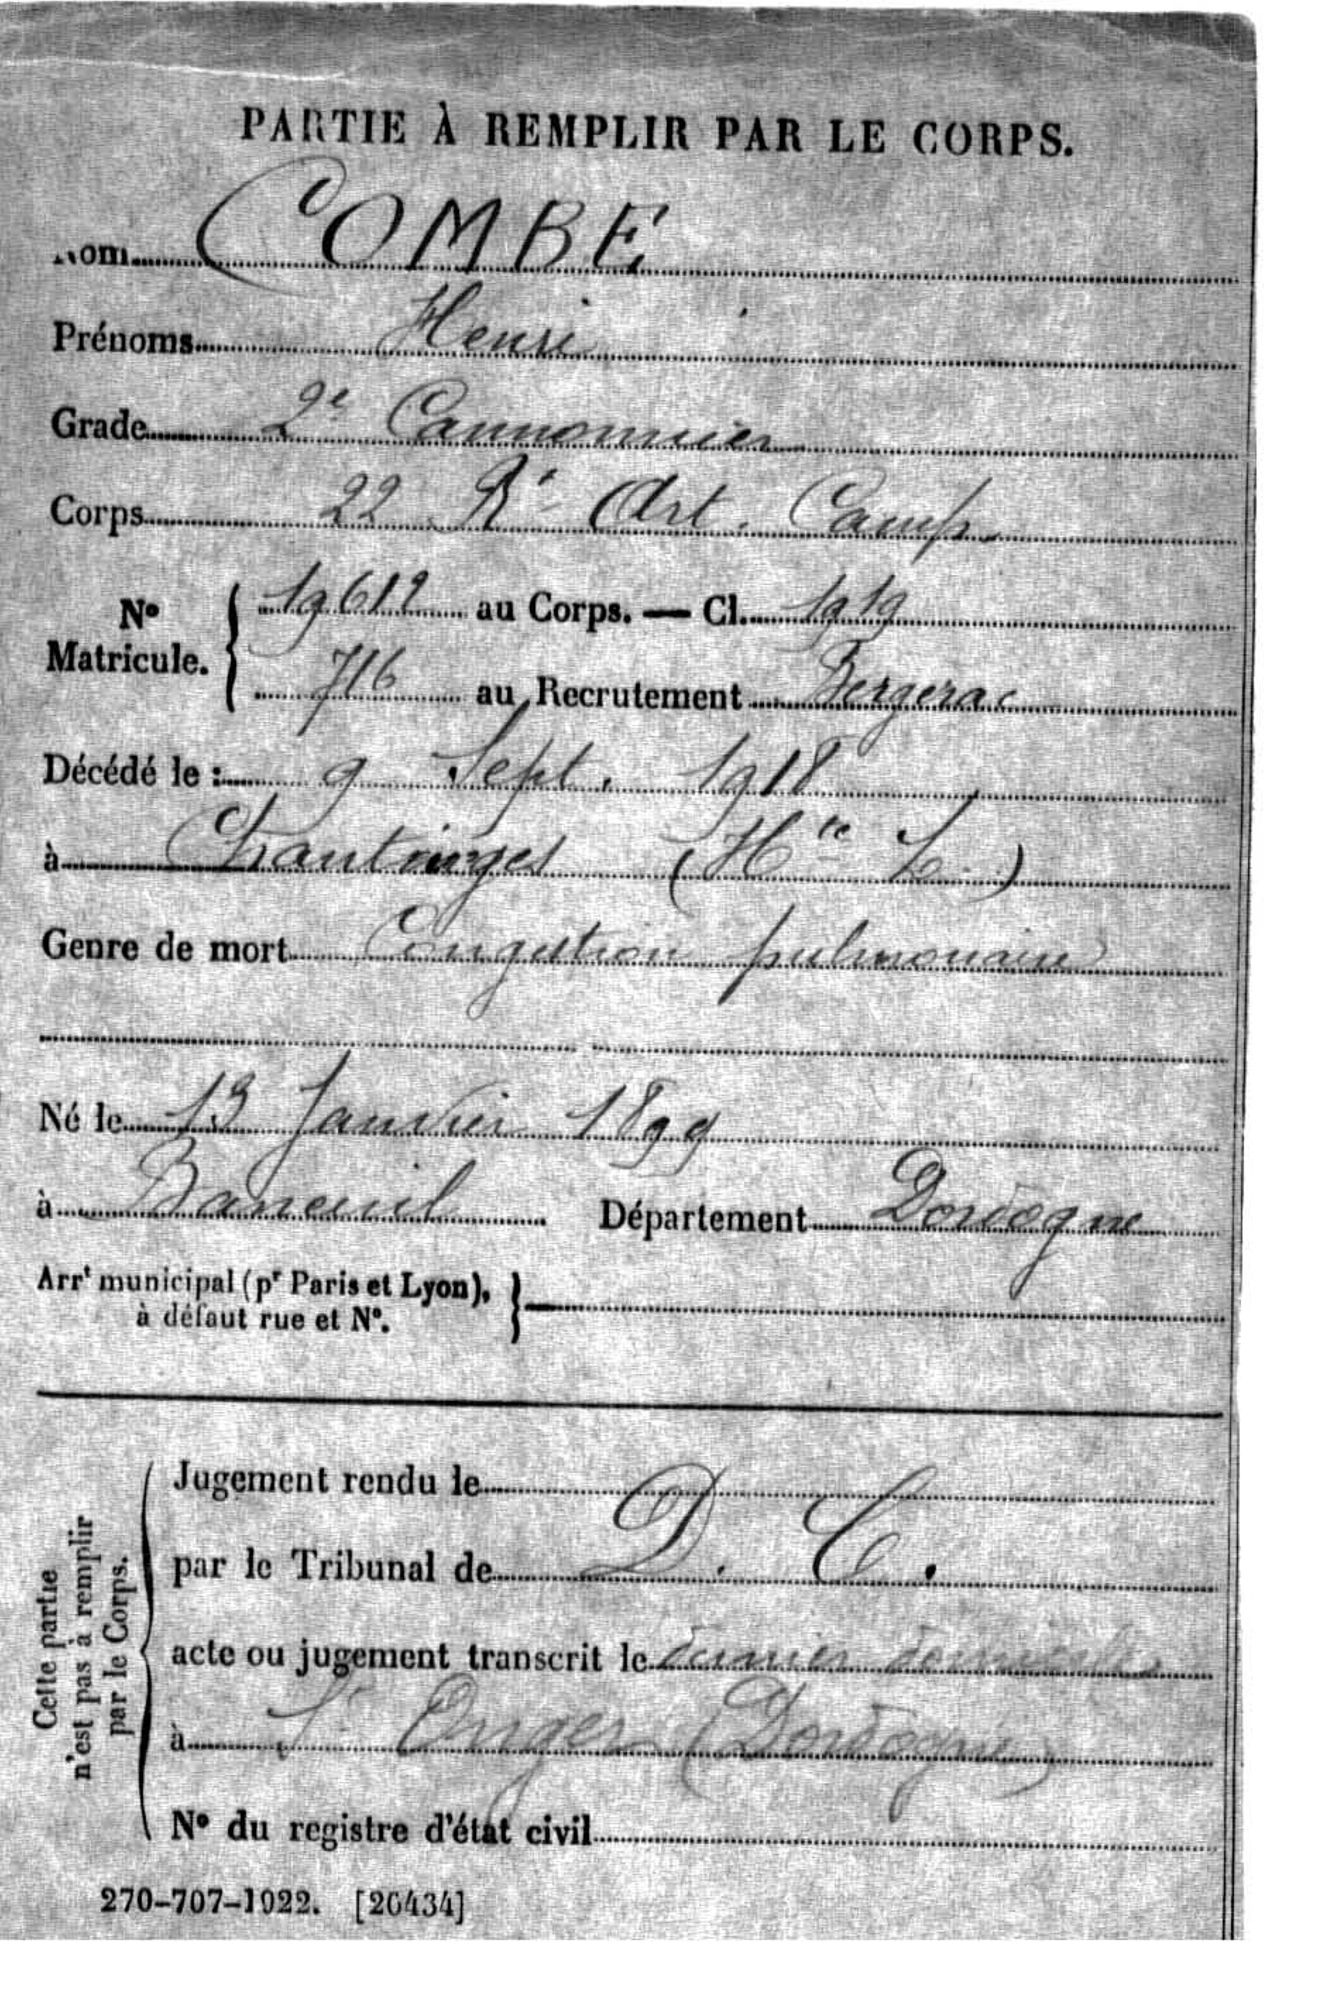 PARTIE À REMPLIR PAR LE CORPS.
Nom COMBE
Prénoms Henri
Grade 2e Cannonnier
Corps 22 Rt Art. Camp.
No Matricule. { 19612 au Corps. — Cl. 1919
716 au Recrutement Bergerac
Décédé le : 9 Sept. 1918
à Chantoinges (Hte L.)
Genre de mort Congestion pulmonaire
Né le 13 Janvier 1899
à Baneuil Département Dordogne
Arrt municipal (pr Paris et Lyon), }
à défaut rue et No.
Cette partie
n'est pas à remplir
par le Corps.
Jugement rendu le
par le Tribunal de D. C.
acte ou jugement transcrit le dernier domicile
à St (Dordogne)
No du registre d'état civil
270-707-1922. [26434]